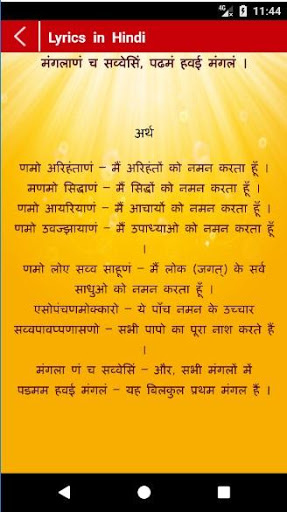 4G 11:44
Lyrics in Hindi
मंगलाणं च सव्वेसिं, पढमं हवई मंगलं ।
अर्थ
णमो अरिहंताणं – मैं अरिहंतों को नमन करता हूँ ।
मणमो सिद्धाणं – मैं सिद्धों को नमन करता हूँ ।
णमो आयरियाणं – मैं आचार्यों को नमन करता हूँ ।
णमो उवज्झायाणं – मैं उपाध्याओ को नमन करता हूँ
।
णमो लोए सव्व साहूणं – मैं लोक (जगत्) के सर्व
साधुओ को नमन करता हूँ ।
एसोपंचणमोक्कारो – ये पाँच नमन के उच्चार
सव्वपावप्पणासणो – सभी पापो का पूरा नाश करते हैं
।
मंगला णं च सव्वेसिं – और, सभी मंगलों में
पडमम हवई मंगलं – यह बिलकुल प्रथम मंगल हैं ।